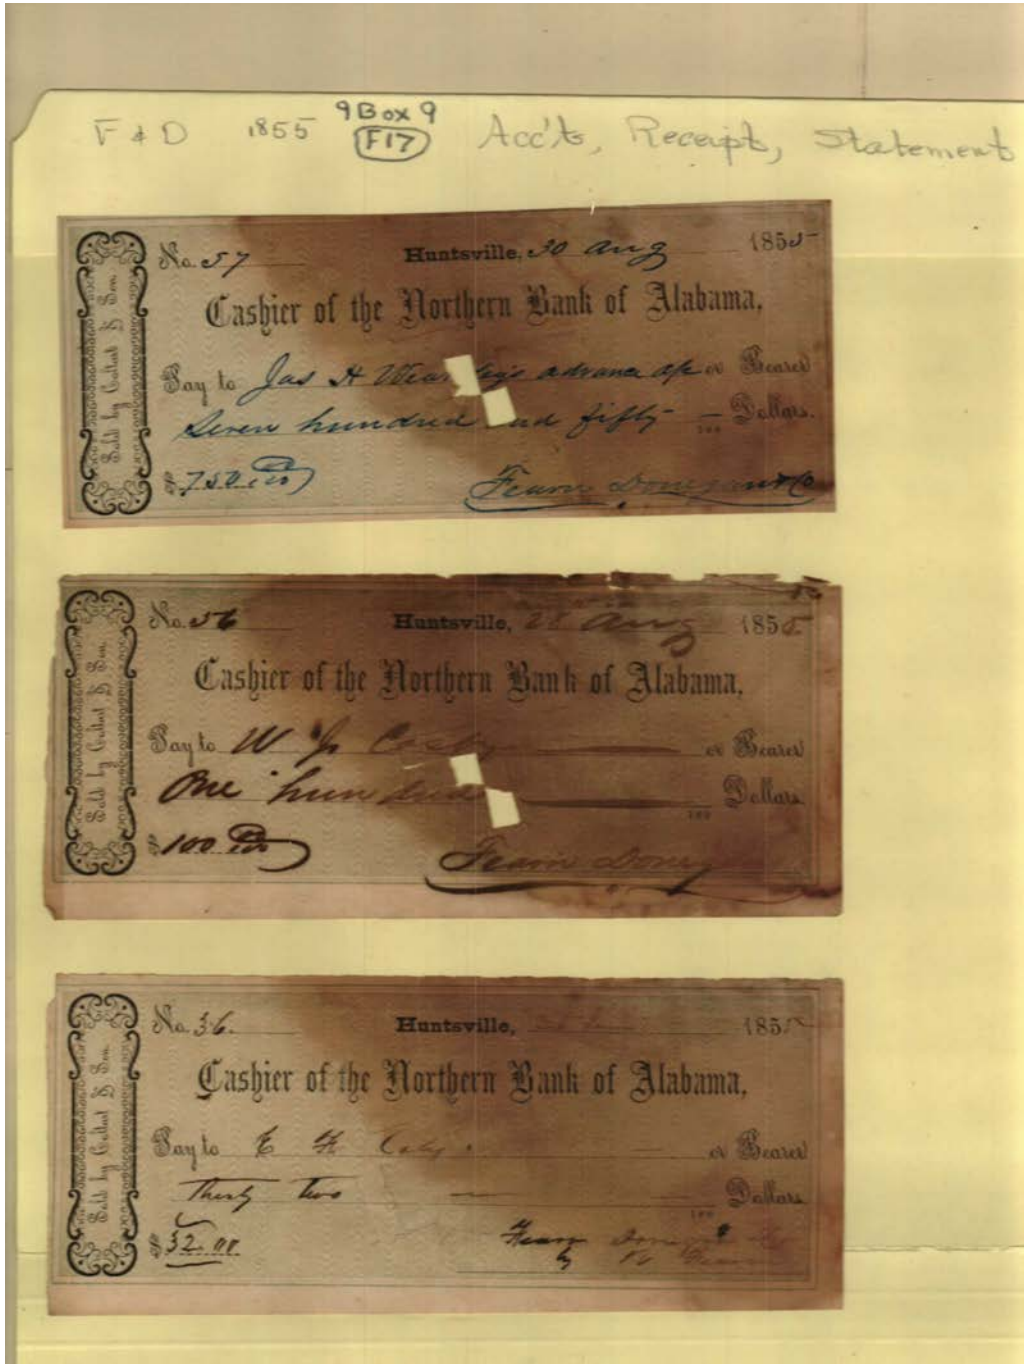 F & D 1855 9 Box 9 Acc'ts, Receipt, Statement
F17
No. 57 Huntsville, 30 Aug 1855
Cashier of the Northern Bank of Alabama,
Pay to Jas H advance or Bearer
Seven hundred fifty — Dollars.
100
$ 750
Fearn Donegan & Co
Sold by & Son.
No. 56 Huntsville, 28 Aug 1855
Cashier of the Northern Bank of Alabama,
Pay to W or Bearer
One hundred Dollars
100
$ 100
Fearn Donegan
Sold by & Son.
No. 36. Huntsville, 1855
Cashier of the Northern Bank of Alabama,
Pay to E or Bearer
Thirty two — Dollars
100
$ 32.00
Fearn
by Fearn
Sold by & Son.